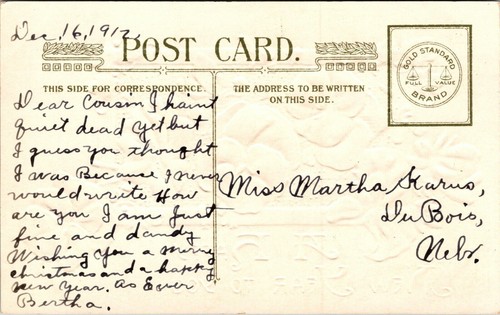 Dec. 16, 1912.
POST CARD.
GOLD STANDARD
FULL VALUE
BRAND
THIS SIDE FOR CORRESPONDENCE.
THE ADDRESS TO BE WRITTEN
ON THIS SIDE.
Dear Cousin I haint
quiet dead yet but
I guess you thought
I was Because I never
would write How
are you I am Just
fine and dandy
Wishing you a merry
christmas and a happy
new year. as Ever
Bertha.
Miss Martha Karus,
DuBois,
Nebr.